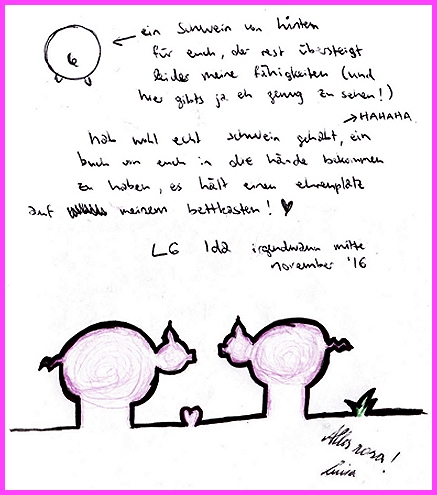 ein Schwein von hinten
für euch, der rest übersteigt
leider meine fähigkeiten (und
hier gibts ja eh genug zu sehen!)
→ HAHAHA
hab wohl echt schwein gehabt, ein
buch von euch in die hände bekommen
zu haben, es hält einen ehrenplatz
auf meinem bettkasten! ♥
LG Ida irgendwann mitte
november '16
Alles rosa!
Luisa